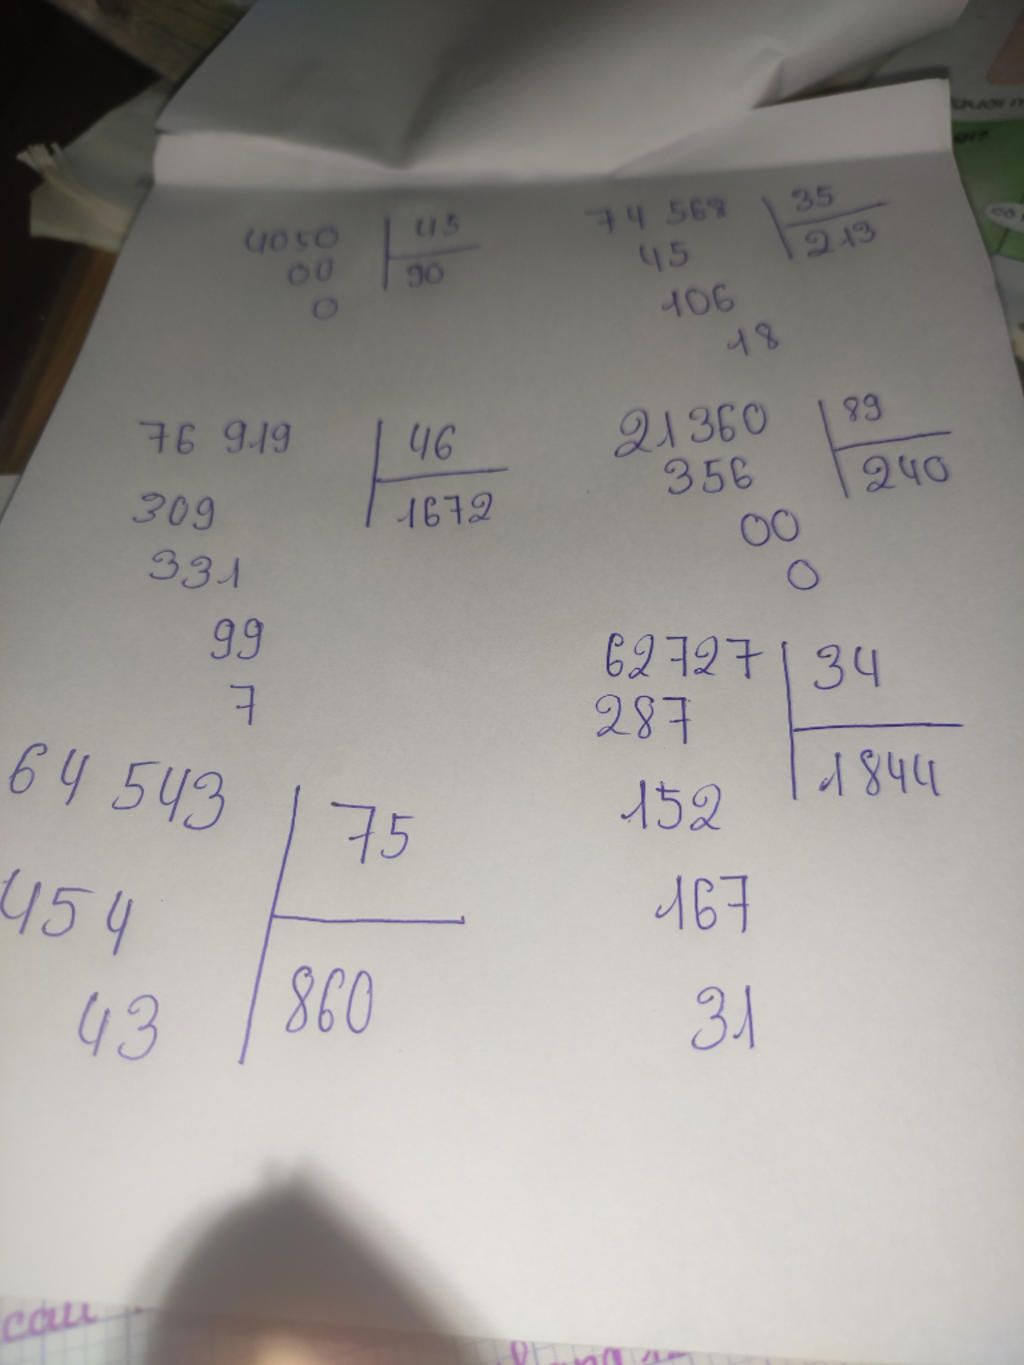 4050 45
00 90
0
74 568 35
45 213
106
18
76 919 46
309 1672
331
99
7
21360 89
356 240
00
0
64 543 75
454 860
43
62727 34
287 1844
152
167
31